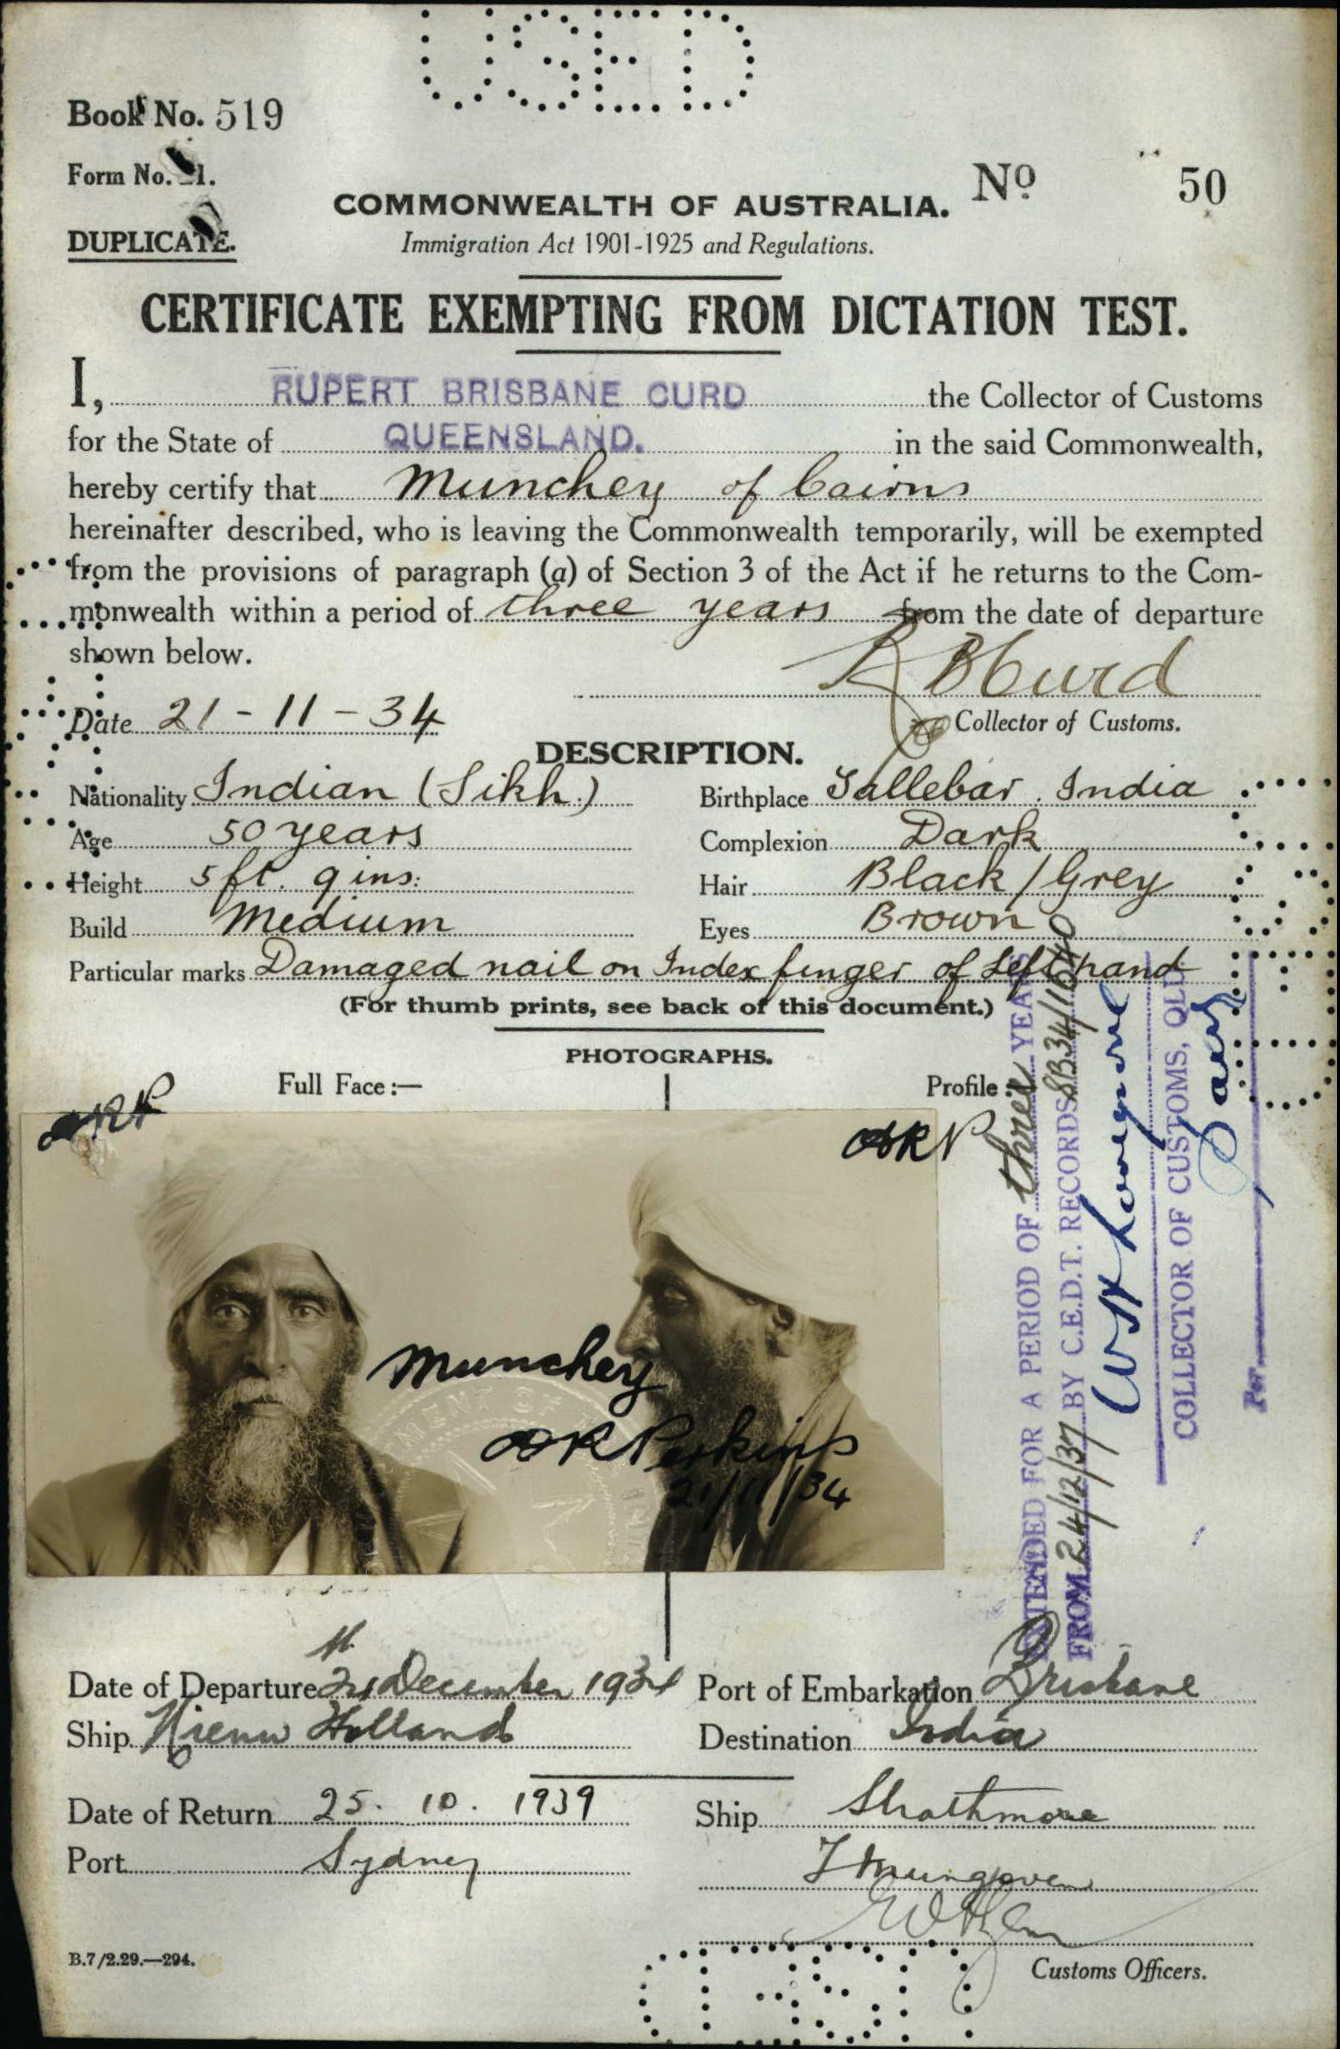 USED
Book No. 519
Form No. 21.
DUPLICATE.
No 50
COMMONWEALTH OF AUSTRALIA.
Immigration Act 1901-1925 and Regulations.
CERTIFICATE EXEMPTING FROM DICTATION TEST.
I, RUPERT BRISBANE CURD the Collector of Customs
for the State of QUEENSLAND. in the said Commonwealth,
hereby certify that Munchey of Cairns
hereinafter described, who is leaving the Commonwealth temporarily, will be exempted
from the provisions of paragraph (a) of Section 3 of the Act if he returns to the Com-
monwealth within a period of three years from the date of departure
shown below.
R B Curd
Date 21-11-34
Collector of Customs.
DESCRIPTION.
Nationality Indian (Sikh.)
Birthplace Jallebar. India
Age 50 years
Complexion Dark
Height 5 ft. 9 ins.
Hair Black/Grey
Build Medium
Eyes Brown
Particular marks Damaged nail on Index finger of left hand
(For thumb prints, see back of this document.)
PHOTOGRAPHS.
Full Face:—
Profile:—
Munchey
Perkins
21/11/34
EXTENDED FOR A PERIOD OF three YEARS
FROM 24/12/37 BY C.E.D.T. RECORDS
COLLECTOR OF CUSTOMS, QLD.
Per
Date of Departure 24 December 1934
Port of Embarkation Brisbane
Ship Nieuw Holland
Destination India
Date of Return 25. 10. 1939
Ship Strathmore
Port Sydney
Customs Officers.
B.7/2.29.—294.